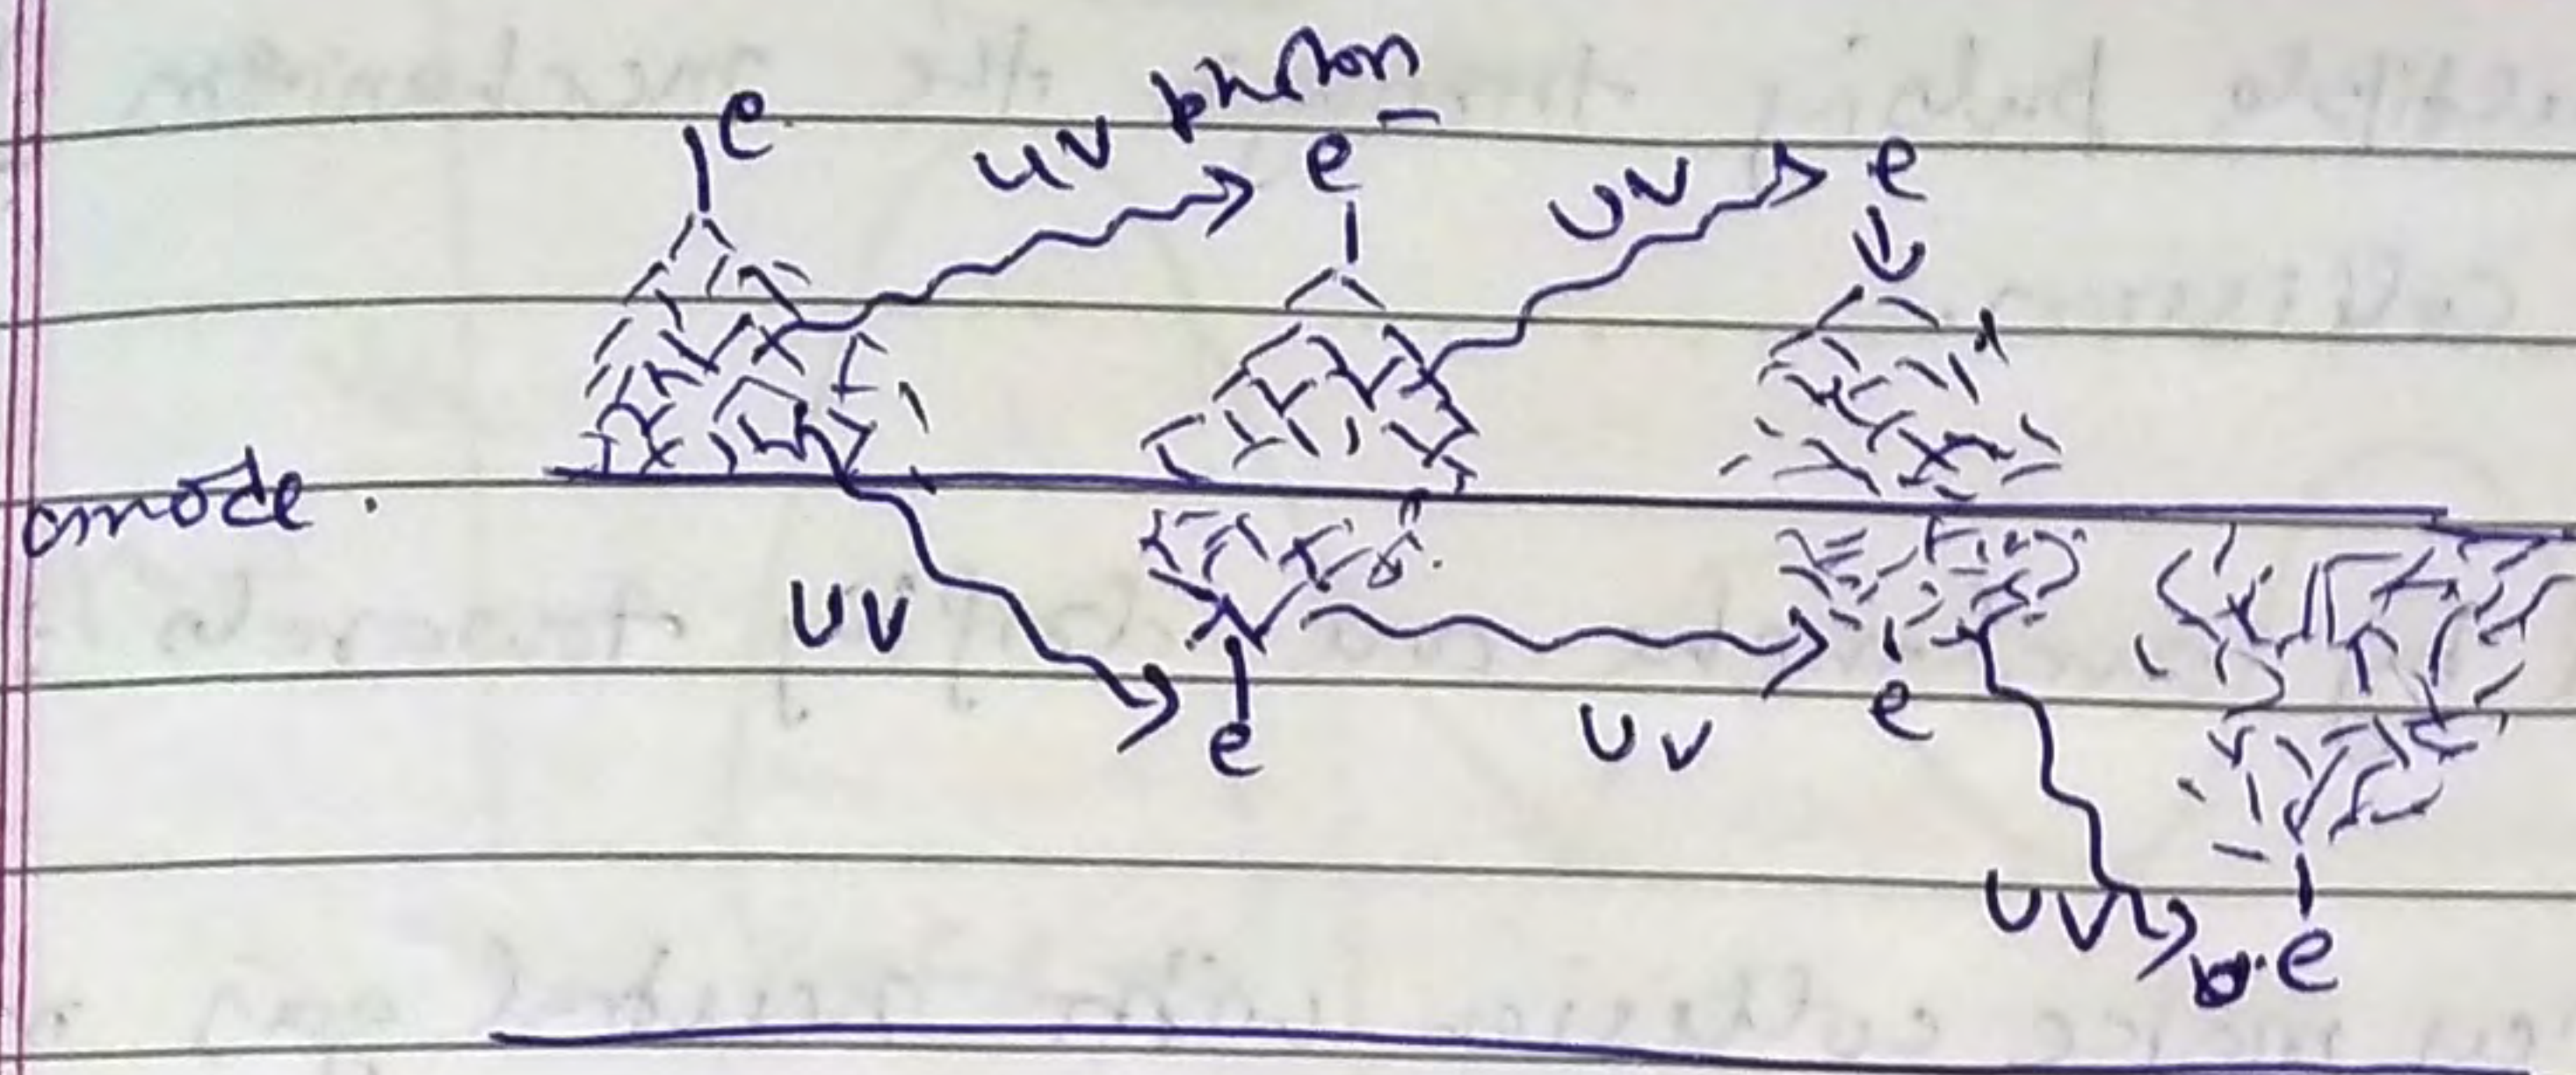 e
UV photon
e⁻
UV
e
anode.
UV
e
UV
e
UV
e